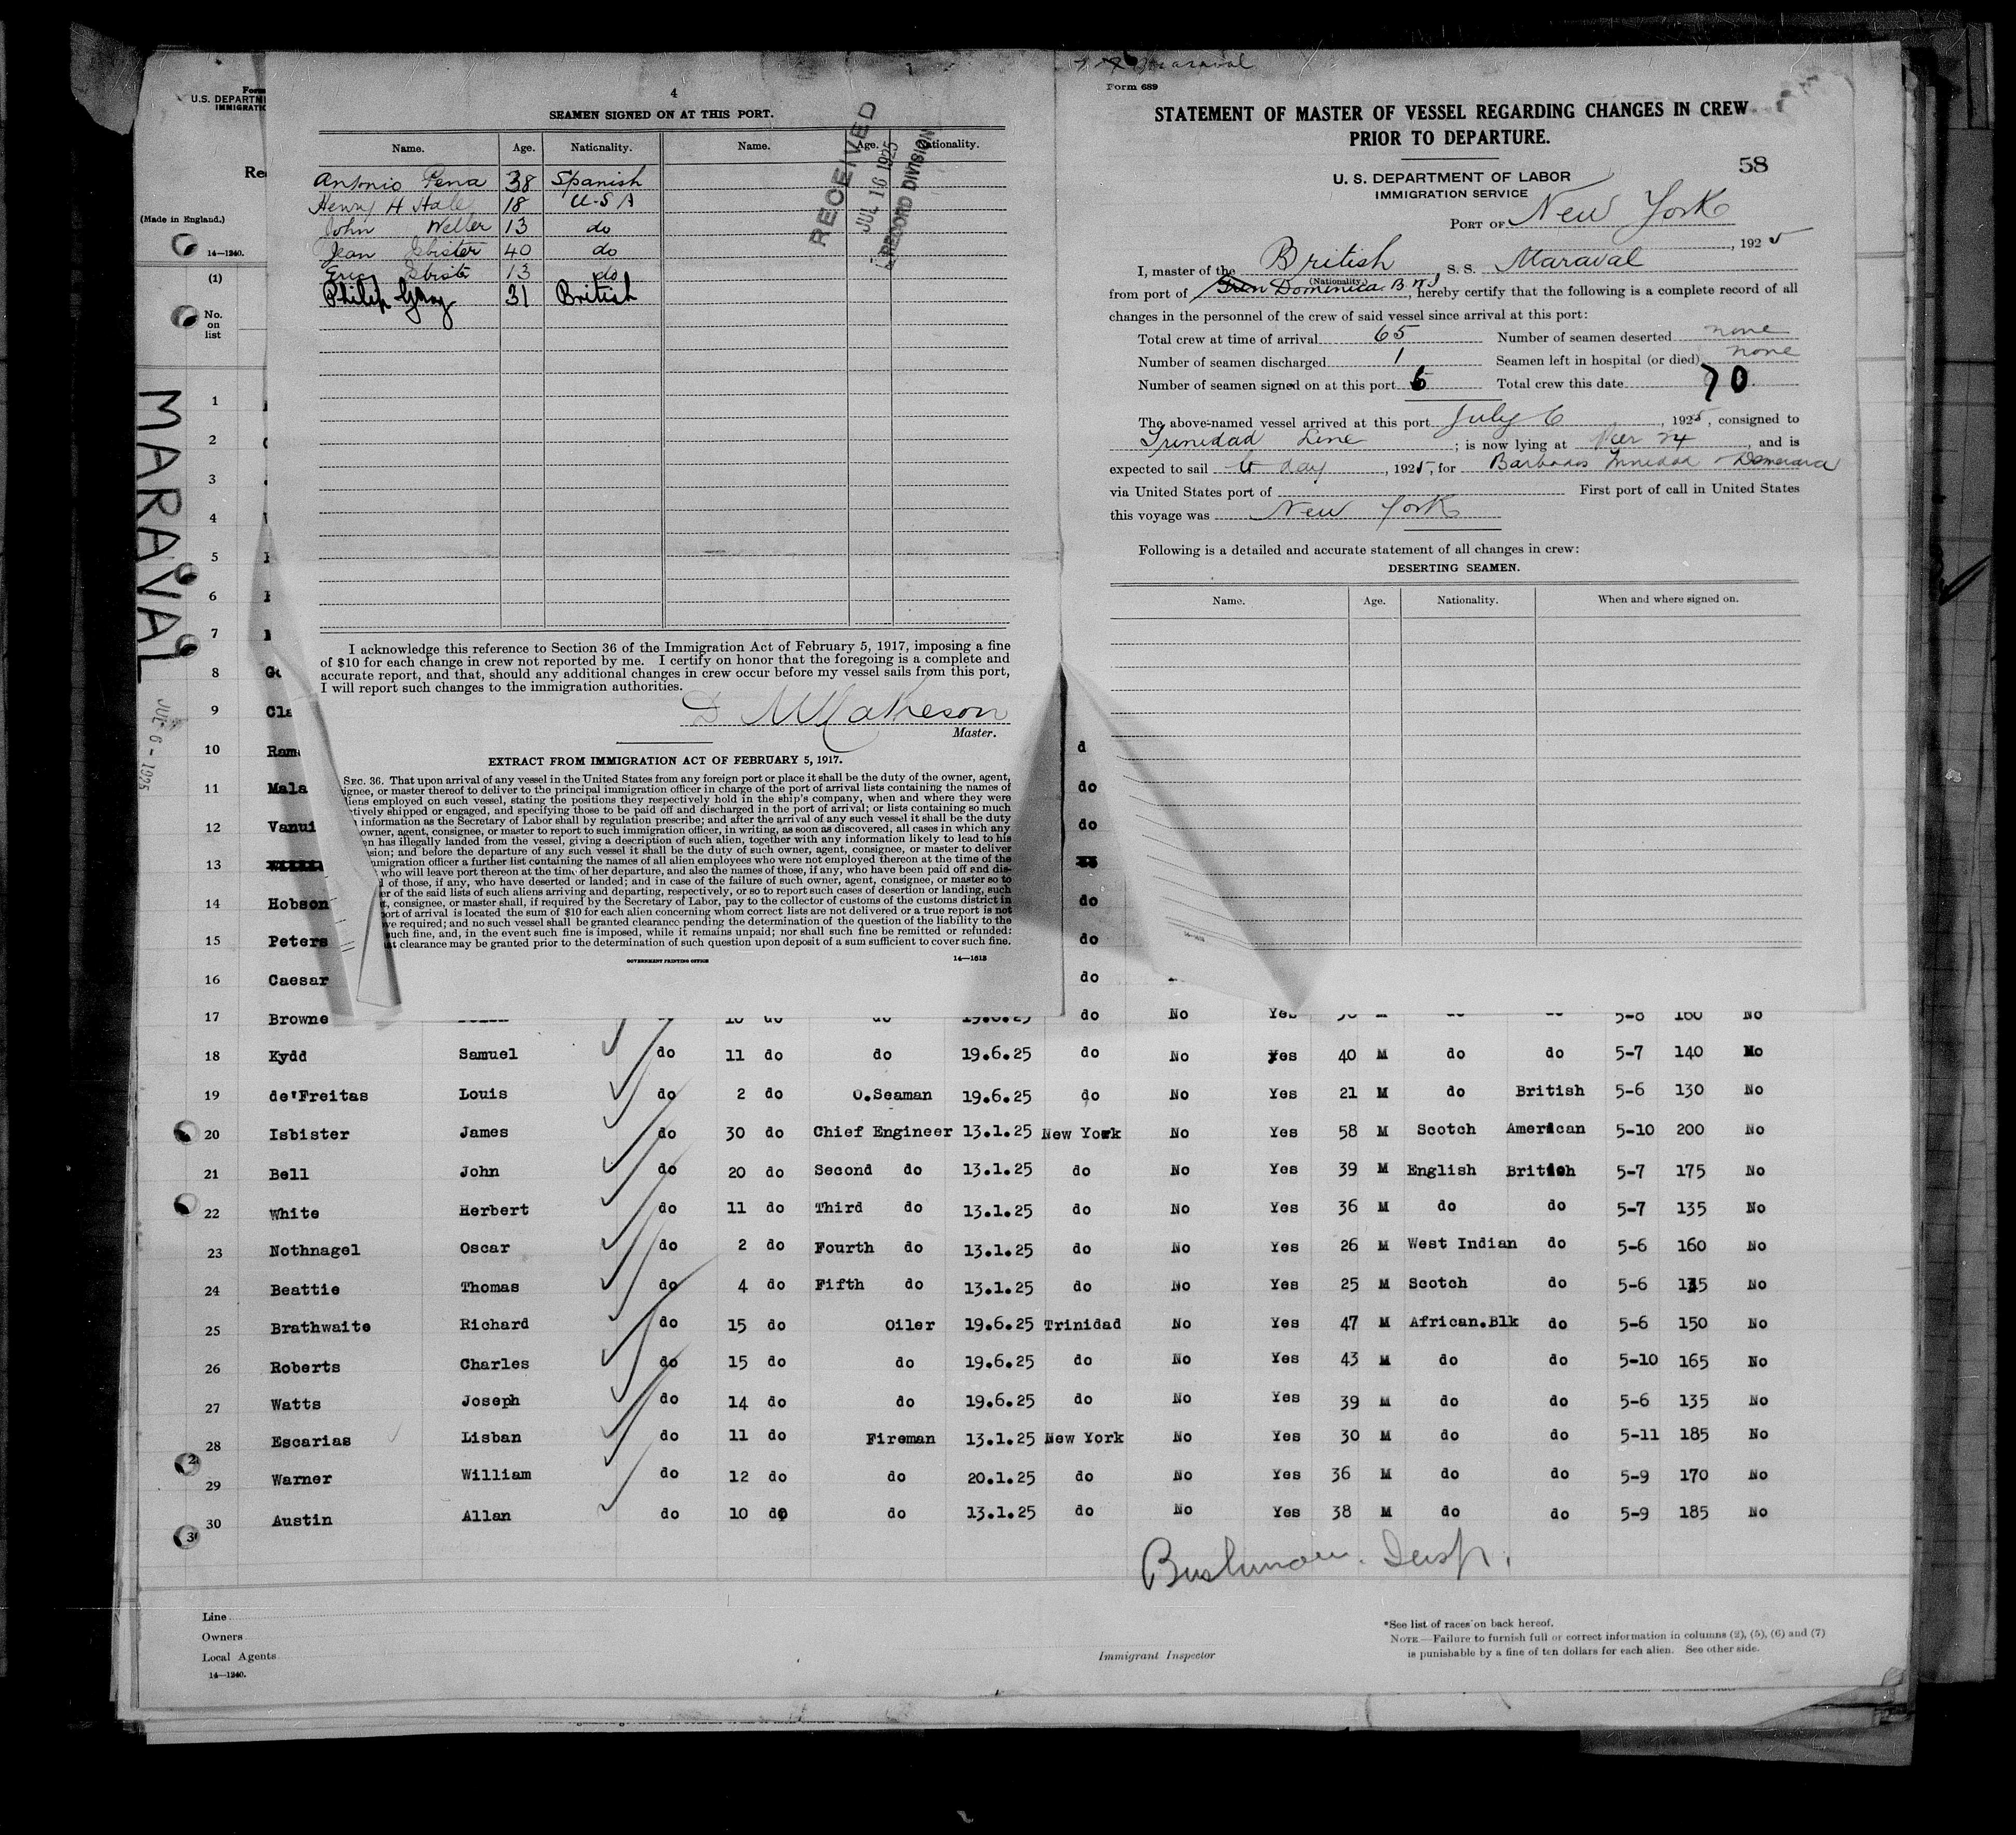 Form
U.S. DEPARTM
IMMIGRATIO
Re
(Made in England.)
14—1240.
(1)
No.
on
list
MARAVAL
JUL 6 - 1925
4
SEAMEN SIGNED ON AT THIS PORT.
Name. Age. Nationality. Name. Age. Nationality.
RECEIVED
JUL 16 1925
RECORD DIVISION
Antonio Pena 38 Spanish
Henry H Hale 18 U-S A
John Weller 13 do
Jean Isbister 40 do
Eric Isbiste 13 do
Philip Gray 31 British
I acknowledge this reference to Section 36 of the Immigration Act of February 5, 1917, imposing a fine
of $10 for each change in crew not reported by me. I certify on honor that the foregoing is a complete and
accurate report, and that, should any additional changes in crew occur before my vessel sails from this port,
I will report such changes to the immigration authorities.
D Matheson
Master.
EXTRACT FROM IMMIGRATION ACT OF FEBRUARY 5, 1917.
SEC. 36. That upon arrival of any vessel in the United States from any foreign port or place it shall be the duty of the owner, agent,
ignee, or master thereof to deliver to the principal immigration officer in charge of the port of arrival lists containing the names of
liens employed on such vessel, stating the positions they respectively hold in the ship's company, when and where they were
ctively shipped or engaged, and specifying those to be paid off and discharged in the port of arrival; or lists containing so much
information as the Secretary of Labor shall by regulation prescribe; and after the arrival of any such vessel it shall be the duty
owner, agent, consignee, or master to report to such immigration officer, in writing, as soon as discovered, all cases in which any
en has illegally landed from the vessel, giving a description of such alien, together with any information likely to lead to his
sion; and before the departure of any such vessel it shall be the duty of such owner, agent, consignee, or master to deliver
mmigration officer a further list containing the names of all alien employees who were not employed thereon at the time of the
who will leave port thereon at the time of her departure, and also the names of those, if any, who have been paid off and dis-
d of those, if any, who have deserted or landed; and in case of the failure of such owner, agent, consignee, or master so to
er of the said lists of such aliens arriving and departing, respectively, or so to report such cases of desertion or landing, such
t, consignee, or master shall, if required by the Secretary of Labor, pay to the collector of customs of the customs district in
ort of arrival is located the sum of $10 for each alien concerning whom correct lists are not delivered or a true report is not
ve required; and no such vessel shall be granted clearance pending the determination of the question of the liability to the
such fine, and, in the event such fine is imposed, while it remains unpaid; nor shall such fine be remitted or refunded:
at clearance may be granted prior to the determination of such question upon deposit of a sum sufficient to cover such fine.
GOVERNMENT PRINTING OFFICE 14—1613
Maraval
Form 689
STATEMENT OF MASTER OF VESSEL REGARDING CHANGES IN CREW
PRIOR TO DEPARTURE.
58
U. S. DEPARTMENT OF LABOR
IMMIGRATION SERVICE
PORT OF New York
, 1925
I, master of the British , S. S. Maraval
(Nationality)
from port of Dominica B.W.I , hereby certify that the following is a complete record of all
changes in the personnel of the crew of said vessel since arrival at this port:
Total crew at time of arrival 65 Number of seamen deserted none
Number of seamen discharged 1 Seamen left in hospital (or died) none
Number of seamen signed on at this port 6 Total crew this date 70
The above-named vessel arrived at this port July 6 , 1925, consigned to
Trinidad Line ; is now lying at Pier 24 , and is
expected to sail to day , 1925, for Barbados Trinidad Demerara
via United States port of First port of call in United States
this voyage was New York
Following is a detailed and accurate statement of all changes in crew:
DESERTING SEAMEN.
Name. Age. Nationality. When and where signed on.
1
2
3
4
5
6
7
8 Go
9 Cla
10 Ram d
11 Mala do
12 Vanui do
13
14 Hobson do
15 Peters do
16 Caesar do
17 Browne do 19.6.25 do No Yes 5-8 160 No
18 Kydd Samuel do 11 do do 19.6.25 do No Yes 40 M do do 5-7 140 No
19 de'Freitas Louis do 2 do O.Seaman 19.6.25 do No Yes 21 M do British 5-6 130 No
20 Isbister James do 30 do Chief Engineer 13.1.25 New York No Yes 58 M Scotch American 5-10 200 No
21 Bell John do 20 do Second do 13.1.25 do No Yes 39 M English British 5-7 175 No
22 White Herbert do 11 do Third do 13.1.25 do No Yes 36 M do do 5-7 135 No
23 Nothnagel Oscar do 2 do Fourth do 13.1.25 do No Yes 26 M West Indian do 5-6 160 No
24 Beattie Thomas do 4 do Fifth do 13.1.25 do No Yes 25 M Scotch do 5-6 No
25 Brathwaite Richard do 15 do Oiler 19.6.25 Trinidad No Yes 47 M African.Blk do 5-6 150 No
26 Roberts Charles do 15 do do 19.6.25 do No Yes 43 M do do 5-10 165 No
27 Watts Joseph do 14 do do 19.6.25 do No Yes 39 M do do 5-6 135 No
28 Escarias Lisban do 11 do Fireman 13.1.25 New York No Yes 30 M do do 5-11 185 No
29 Warner William do 12 do do 20.1.25 do No Yes 36 M do do 5-9 170 No
30 Austin Allan do 10 do do 13.1.25 do No Yes 38 M do do 5-9 185 No
Insp.
Line
Owners
Local Agents
14—1240.
Immigrant Inspector
*See list of races on back hereof.
NOTE—Failure to furnish full or correct information in columns (2), (5), (6) and (7)
is punishable by a fine of ten dollars for each alien. See other side.